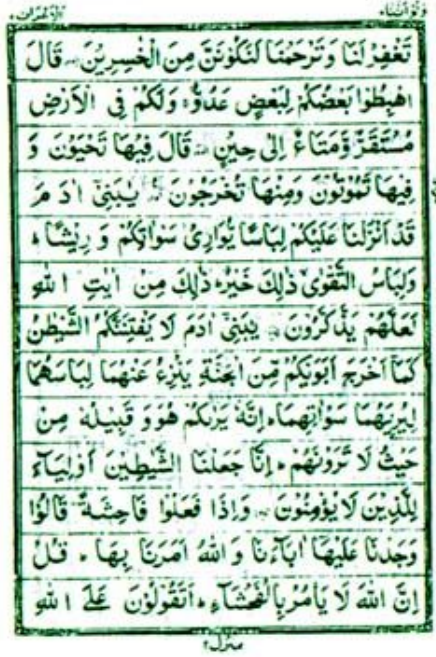 ولواننا ٨ الاعراف ٧
تَغْفِرْ لَنَا وَتَرْحَمْنَا لَنَكُوْنَنَّ مِنَ الْخٰسِرِيْنَ قَالَ
اهْبِطُوْا بَعْضُكُمْ لِبَعْضٍ عَدُوٌّ وَلَكُمْ فِى الْاَرْضِ
مُسْتَقَرٌّ وَّمَتَاعٌ اِلٰى حِيْنٍ قَالَ فِيْهَا تَحْيَوْنَ وَ
فِيْهَا تَمُوْتُوْنَ وَمِنْهَا تُخْرَجُوْنَ يٰبَنِىْٓ اٰدَمَ
قَدْ اَنْزَلْنَا عَلَيْكُمْ لِبَاسًا يُّوَارِىْ سَوْاٰتِكُمْ وَ رِيْشًا ؕ
وَلِبَاسُ التَّقْوٰى ذٰلِكَ خَيْرٌ ؕ ذٰلِكَ مِنْ اٰيٰتِ اللّٰهِ
لَعَلَّهُمْ يَذَّكَّرُوْنَ يٰبَنِىْٓ اٰدَمَ لَا يَفْتِنَنَّكُمُ الشَّيْطٰنُ
كَمَآ اَخْرَجَ اَبَوَيْكُمْ مِّنَ الْجَنَّةِ يَنْزِعُ عَنْهُمَا لِبَاسَهُمَا
لِيُرِيَهُمَا سَوْاٰتِهِمَا ؕ اِنَّهٗ يَرٰىكُمْ هُوَ وَ قَبِيْلُهٗ مِنْ
حَيْثُ لَا تَرَوْنَهُمْ ؕ اِنَّا جَعَلْنَا الشَّيٰطِيْنَ اَوْلِيَآءَ
لِلَّذِيْنَ لَا يُؤْمِنُوْنَ وَاِذَا فَعَلُوْا فَاحِشَةً قَالُوْا
وَجَدْنَا عَلَيْهَآ اٰبَآءَنَا وَ اللّٰهُ اَمَرَنَا بِهَا ؕ قُلْ
اِنَّ اللّٰهَ لَا يَاْمُرُ بِالْفَحْشَآءِ ؕ اَتَقُوْلُوْنَ عَلَى اللّٰهِ
منزل ٢